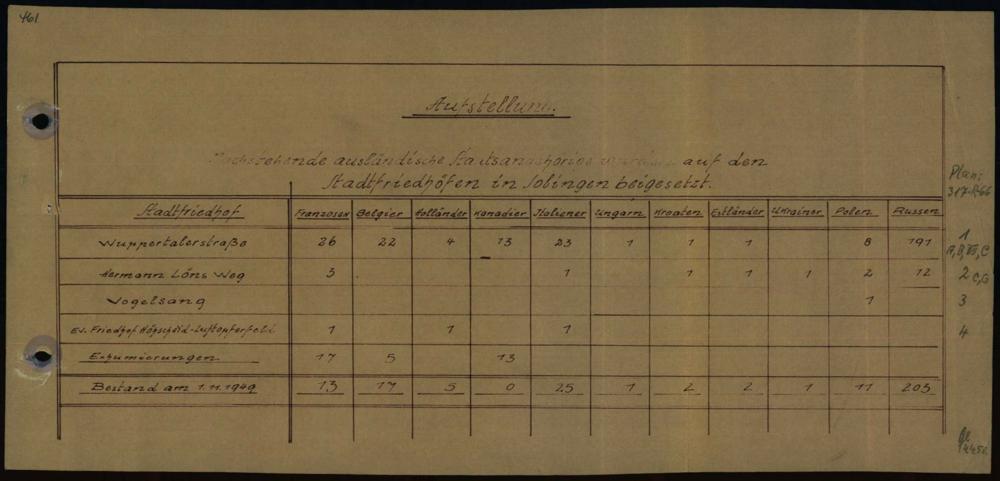 461
Aufstellung.
Nachstehende ausländische Staatsangehörige wurden auf den
Stadtfriedhöfen in Solingen beigesetzt.
Plan:
Stadtfriedhof Franzosen Belgier Holländer Kanadier Italiener Ungarn Kroaten Estländer Ukrainer Polen Russen
Wuppertalerstraße 26 22 4 13 23 1 1 1 8 191 1
Hermann Löns Weg 3 1 1 1 1 2 12 2 C,G
Vogelsang 1 3
Ev. Friedhof Höhscheid-Luftopferfeld 1 1 1 4
Exhumierungen 17 5 13
Bestand am 1.11.1949 13 17 5 0 25 1 2 2 1 11 203